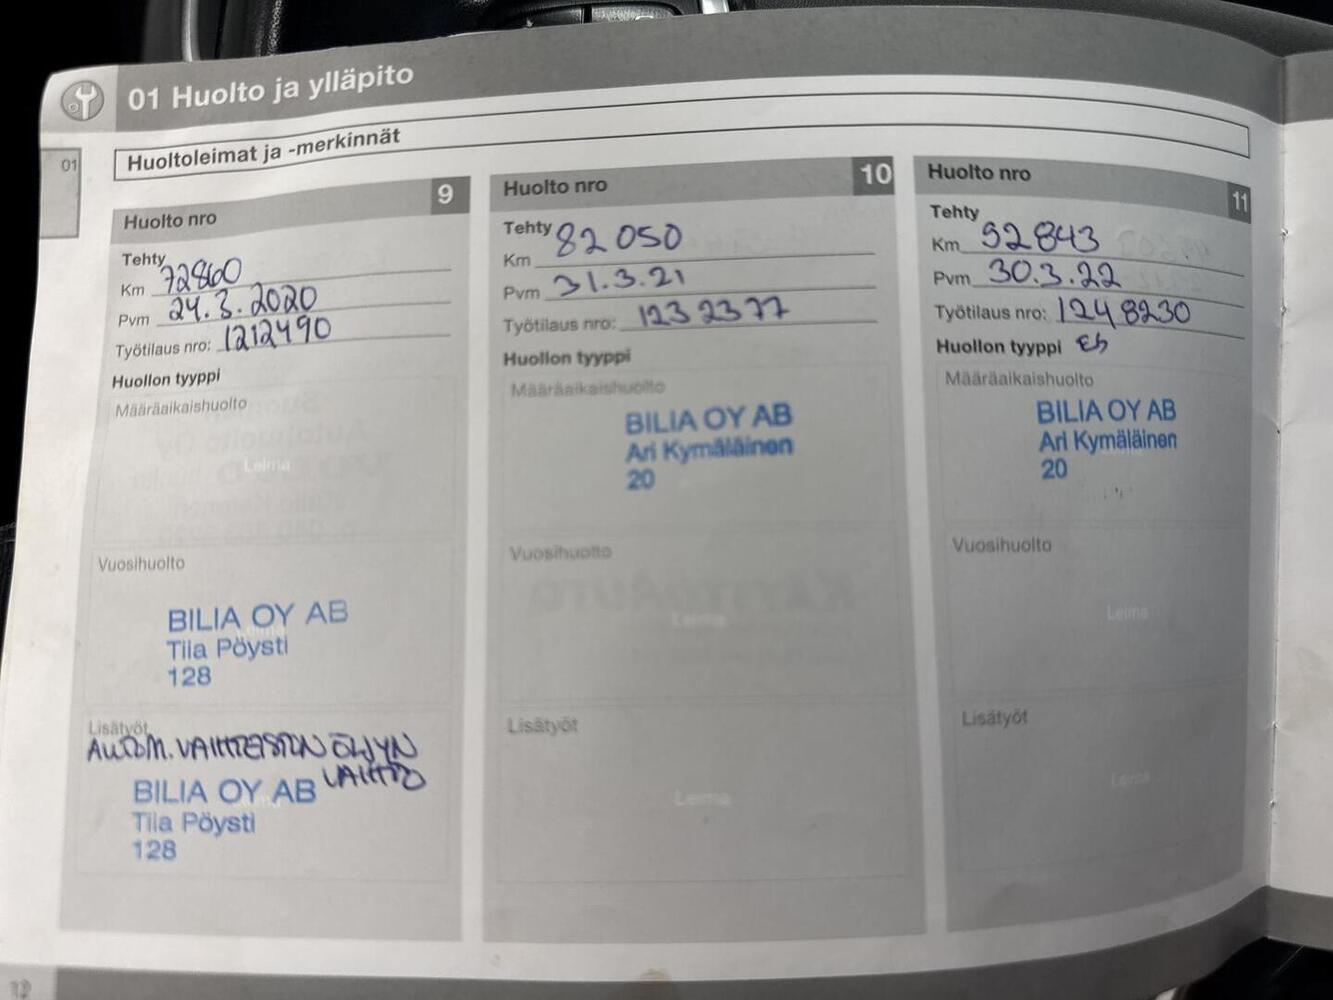 01 Huolto ja ylläpito
01
Huoltoleimat ja -merkinnät
Huolto nro 9
Tehty
Km 72860
Pvm 24.3.2020
Työtilaus nro: 1212490
Huollon tyyppi
Määräaikaishuolto
Leima
Vuosihuolto
BILIA OY AB
Tiia Pöysti
128
Lisätyöt
AUTOM. VAIHTEISTON ÖLJYN
VAIHTO
BILIA OY AB
Tiia Pöysti
128
Huolto nro 10
Tehty
Km 82050
Pvm 31.3.21
Työtilaus nro: 1232377
Huollon tyyppi
Määräaikaishuolto
BILIA OY AB
Ari Kymäläinen
20
Vuosihuolto
Leima
Lisätyöt
Leima
Huolto nro 11
Tehty
Km 92843
Pvm 30.3.22
Työtilaus nro: 1248230
Huollon tyyppi
Määräaikaishuolto
BILIA OY AB
Ari Kymäläinen
20
Vuosihuolto
Leima
Lisätyöt
Leima
12